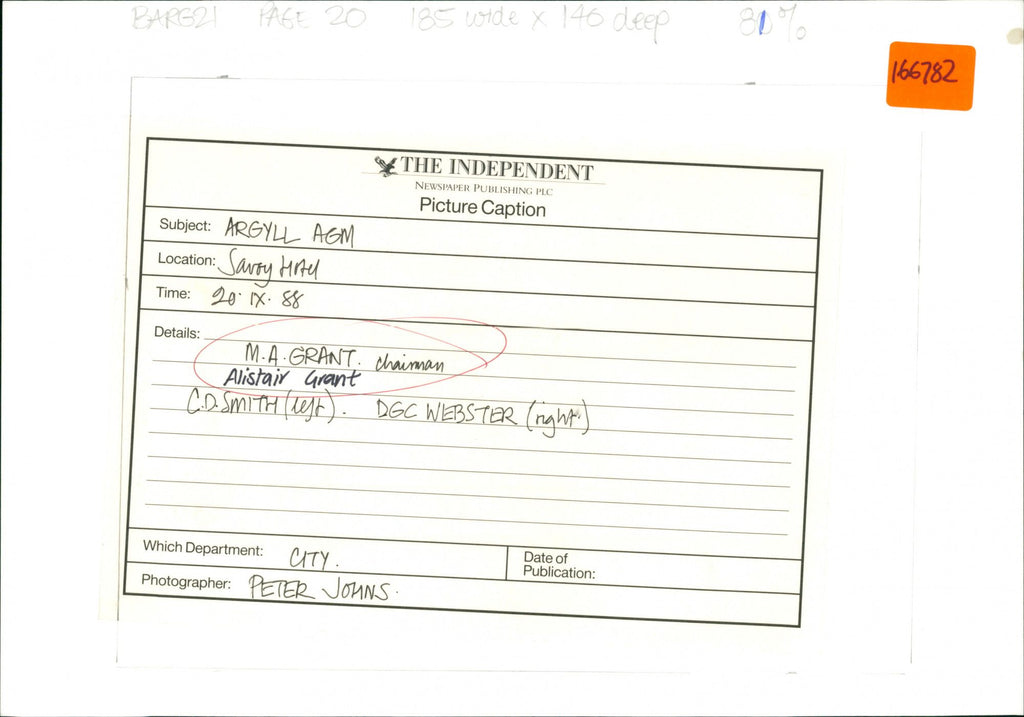 BARG21 PAGE 20 185 wide x 140 deep 81%
166782
THE INDEPENDENT
NEWSPAPER PUBLISHING PLC
Picture Caption
Subject: ARGYLL AGM
Location: Savoy Hotel
Time: 20·IX·88
Details:
M.A. GRANT. chairman
Alistair Grant
C.D. SMITH (left). DGC WEBSTER (right)
Which Department: CITY.
Date of
Publication:
Photographer: PETER JOHNS.